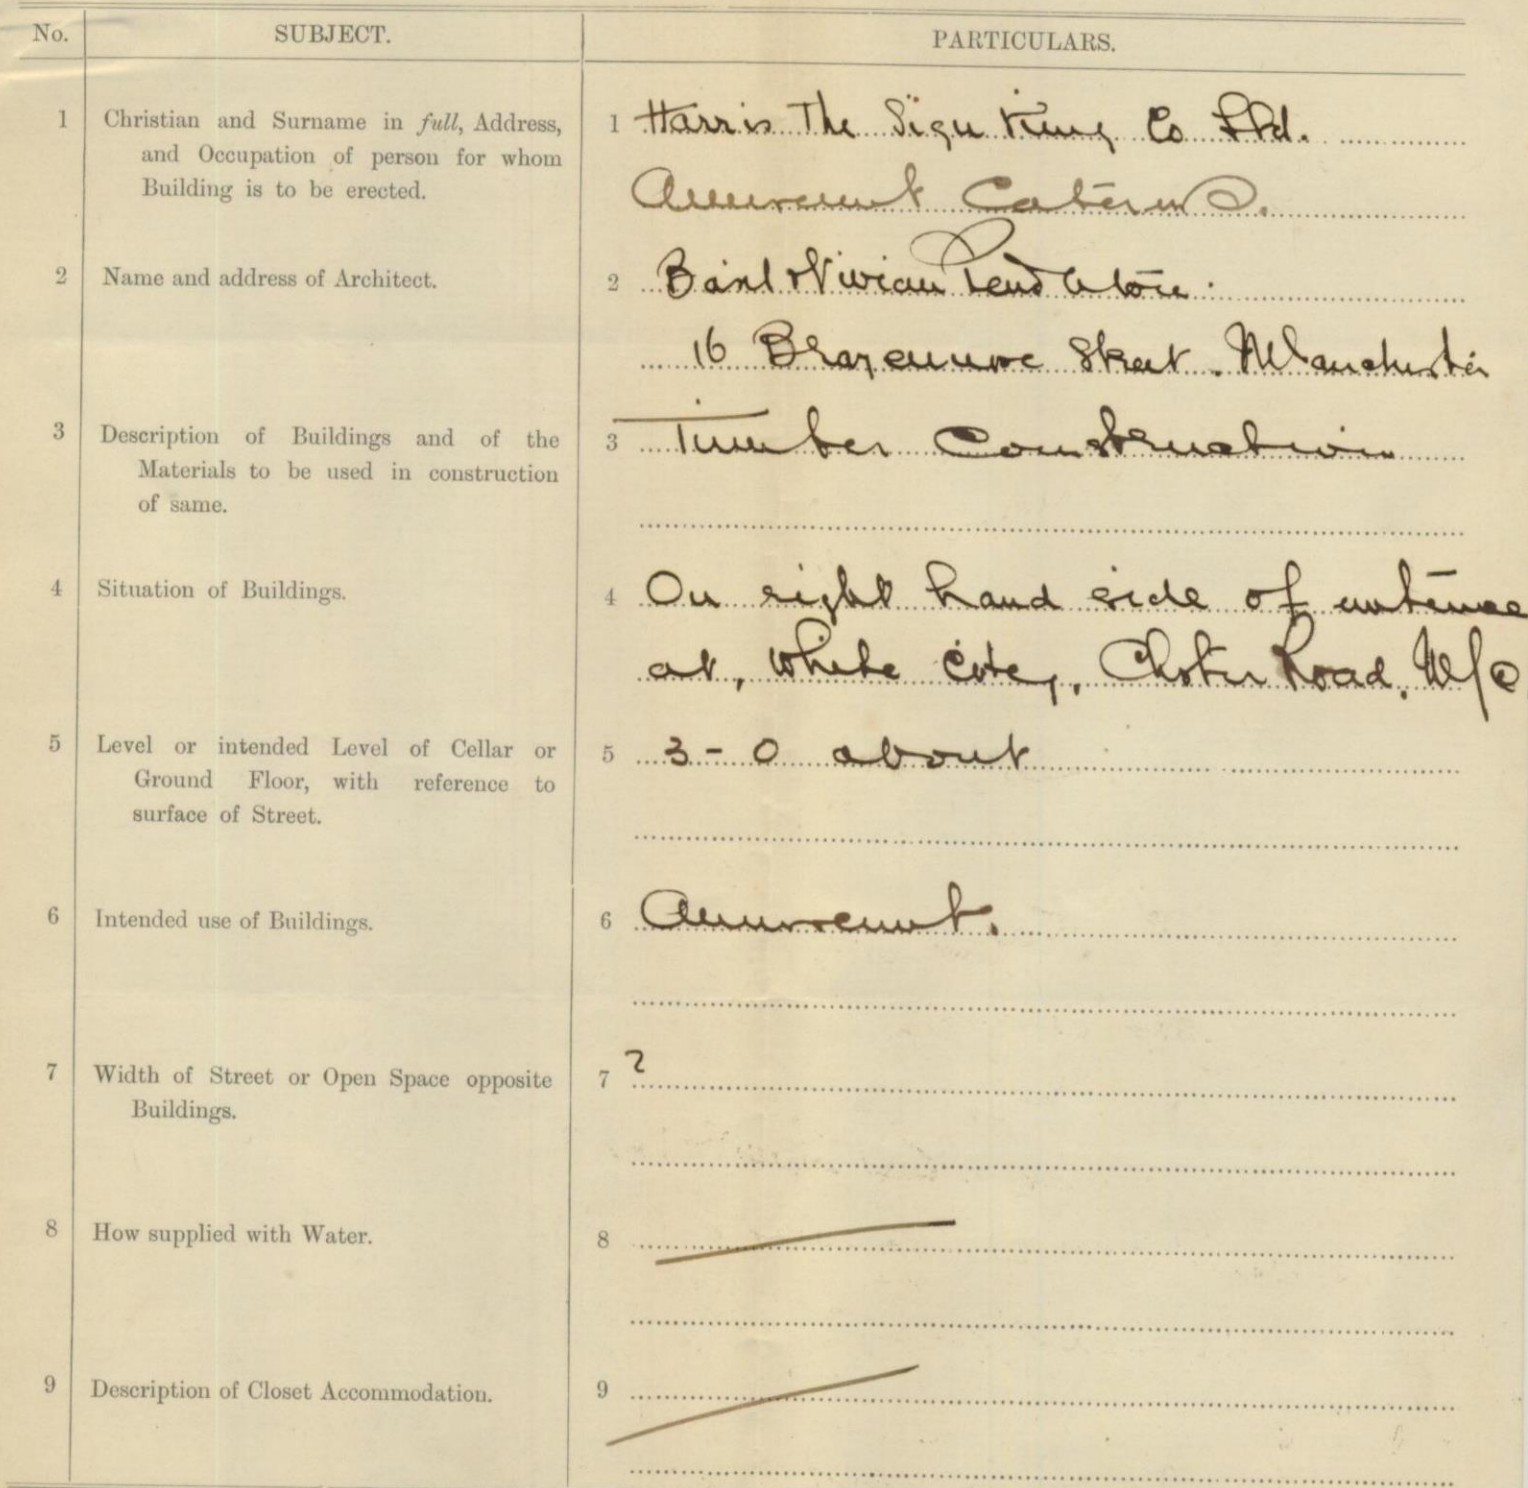 No. SUBJECT. PARTICULARS.
1 Christian and Surname in full, Address, 1 Harris The Sign King Co Ltd.
and Occupation of person for whom
Building is to be erected.
Amusement Caterers.
2 Name and address of Architect. 2 Vivian Pendleton.
16 Brazennose Street. Manchester
3 Description of Buildings and of the 3 Timber Construction
Materials to be used in construction
of same.
4 Situation of Buildings. 4 On right hand side of entrance
at, White City, Chester Road, M/c
5 Level or intended Level of Cellar or 5 3-0 about
Ground Floor, with reference to
surface of Street.
6 Intended use of Buildings. 6 Amusement.
7 Width of Street or Open Space opposite 7 ?
Buildings.
8 How supplied with Water. 8
9 Description of Closet Accommodation. 9